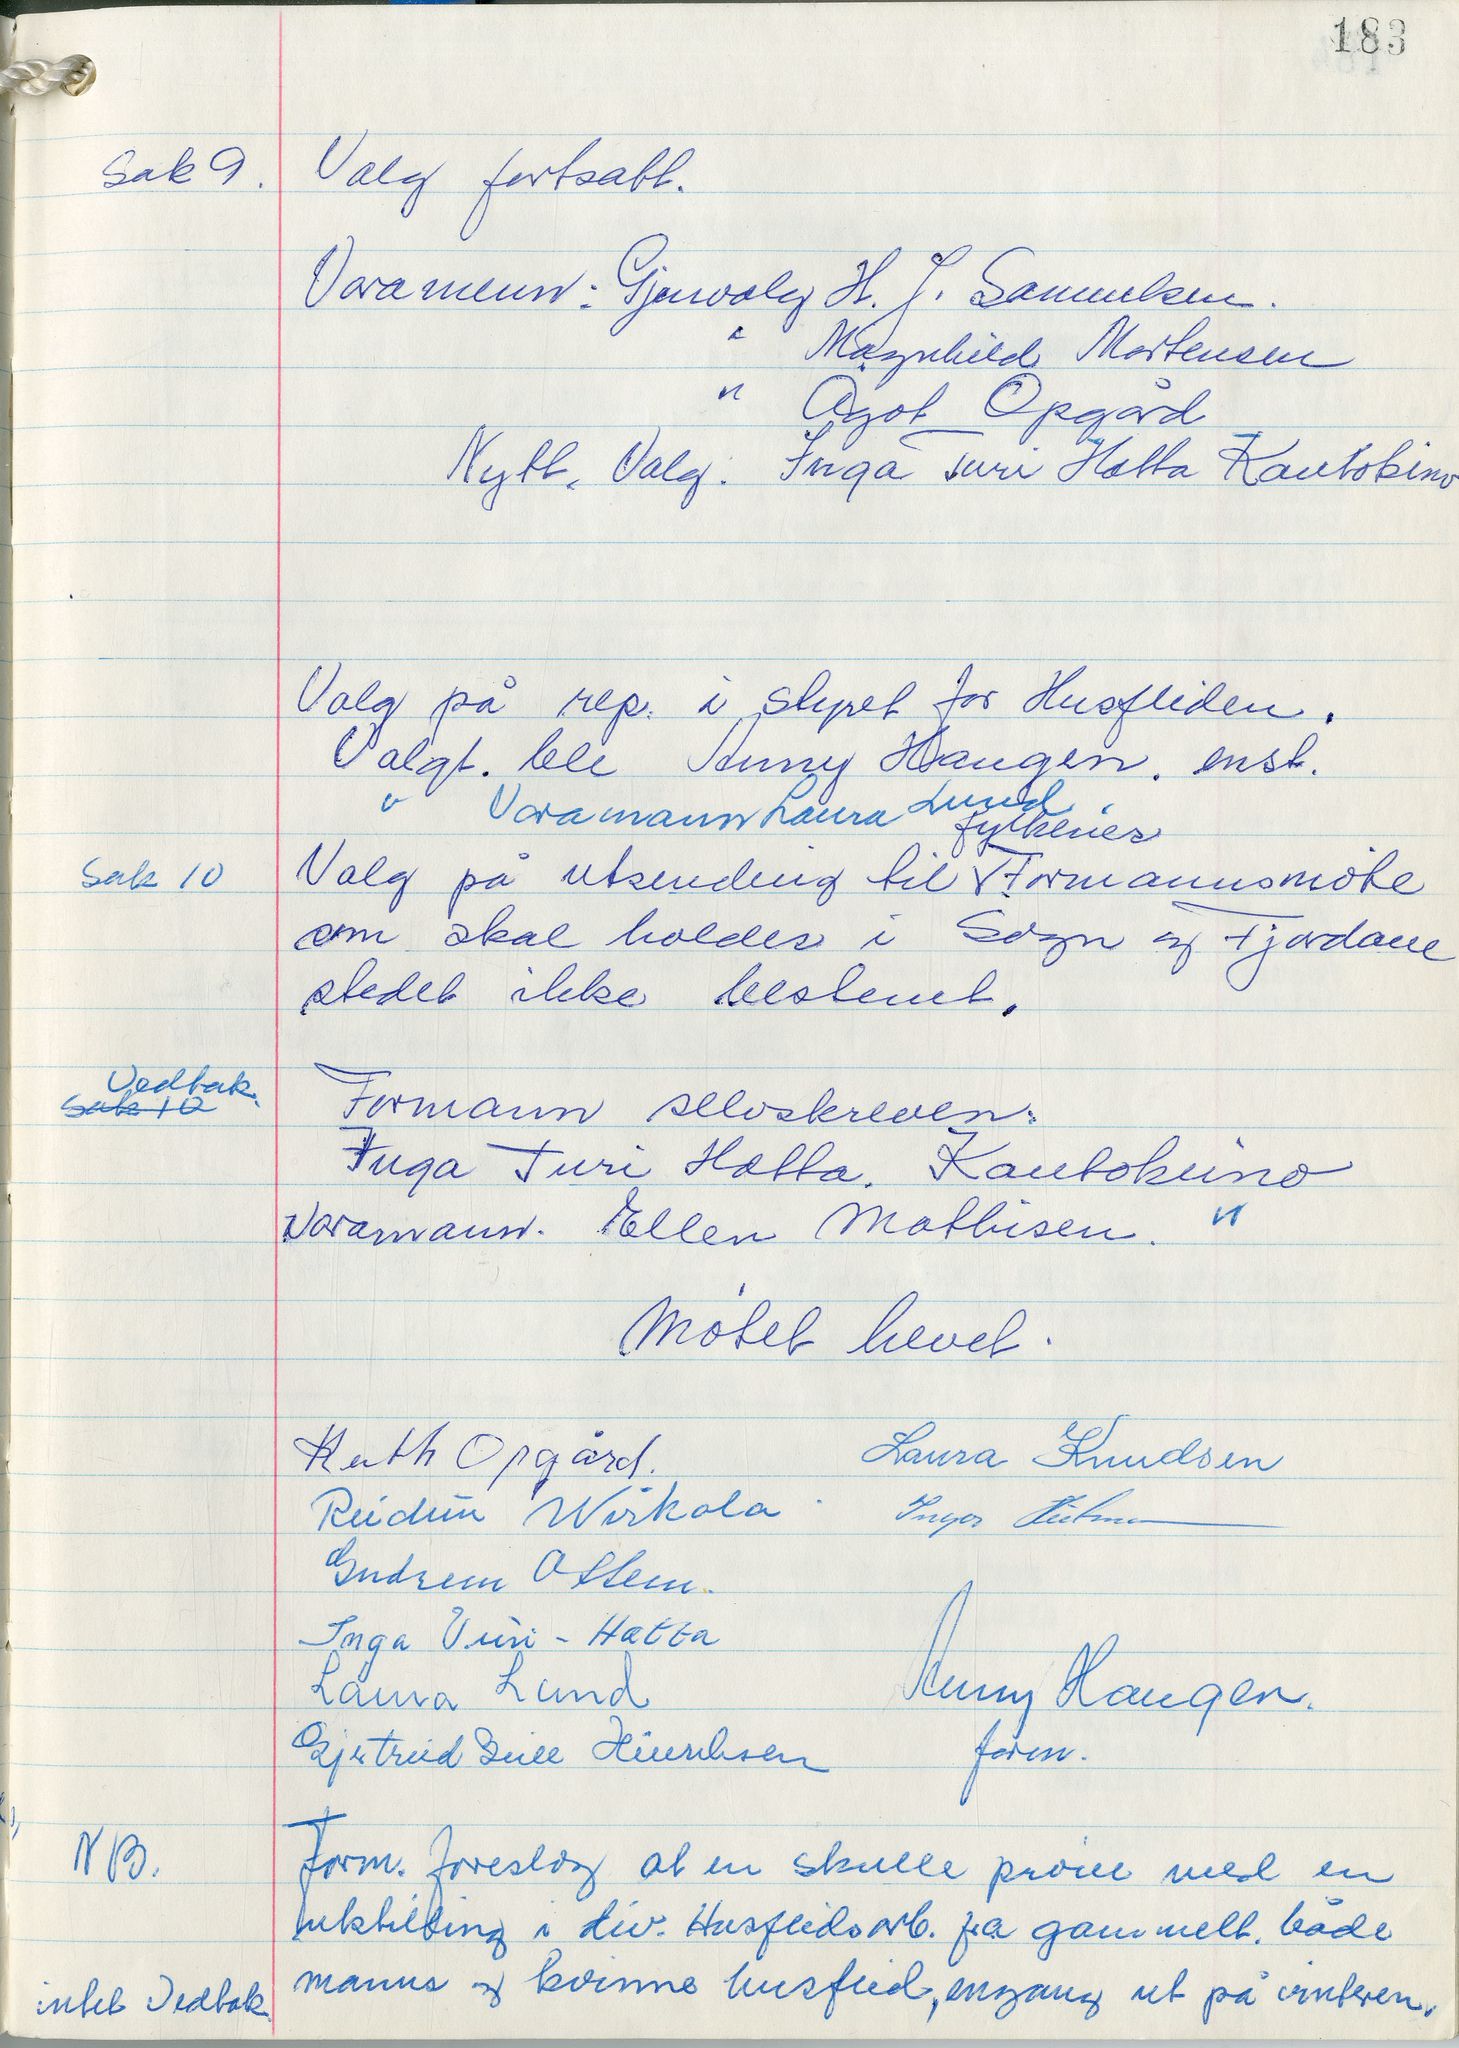 183
Sak 9. Valg fortsatt.
Varamenn: Gjenvalg H. J. Samuelsen.
" Magnhild Mortensen
" Ågot Opgård
Nytt. Valg. Inga Turi Hætta Kautokeino
Valg på rep. i styret for Husfliden.
Valgt. ble Anny Haugen. enst.
" Varamann Laura Lund.
fylkenes
Sak 10 Valg på utsending til V Formannsmöte
som skal holdes i Sogn og Fjordane
stedet ikke bestemt.
Vedtak.
Sak 10 Formann selvskreven.
Inga Turi Hætta. Kautokeino
Varamann. Ellen Mathisen. "
Mötet hevet.
Ruth Opgård. Laura Knudsen
Reidun Wirkola Inger
Gudrun Ottem.
Inga Turi - Hætta
Laura Lund Anny Haugen.
Gjertrud Henriksen form.
NB. Form. foreslog at en skulle pröve med en
utstilling i div. Husflidsarb. fra gammelt. både
intet Vedtak. manns og kvinne husflid, engang ut på vinteren.